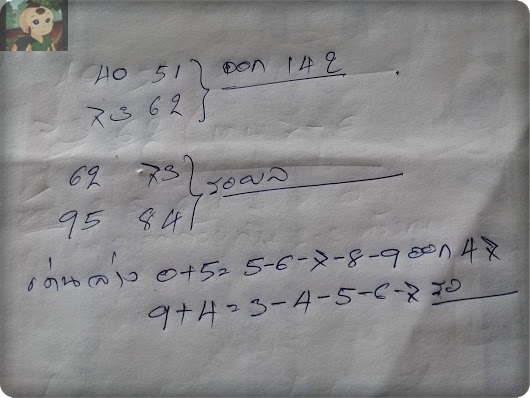 40 51 } ออก 142
73 62
62 73 } รอผล
95 84
เด่นล่าง 0+5=5-6-7-8-9 ออก 47
9+4=3-4-5-6-7 รอ